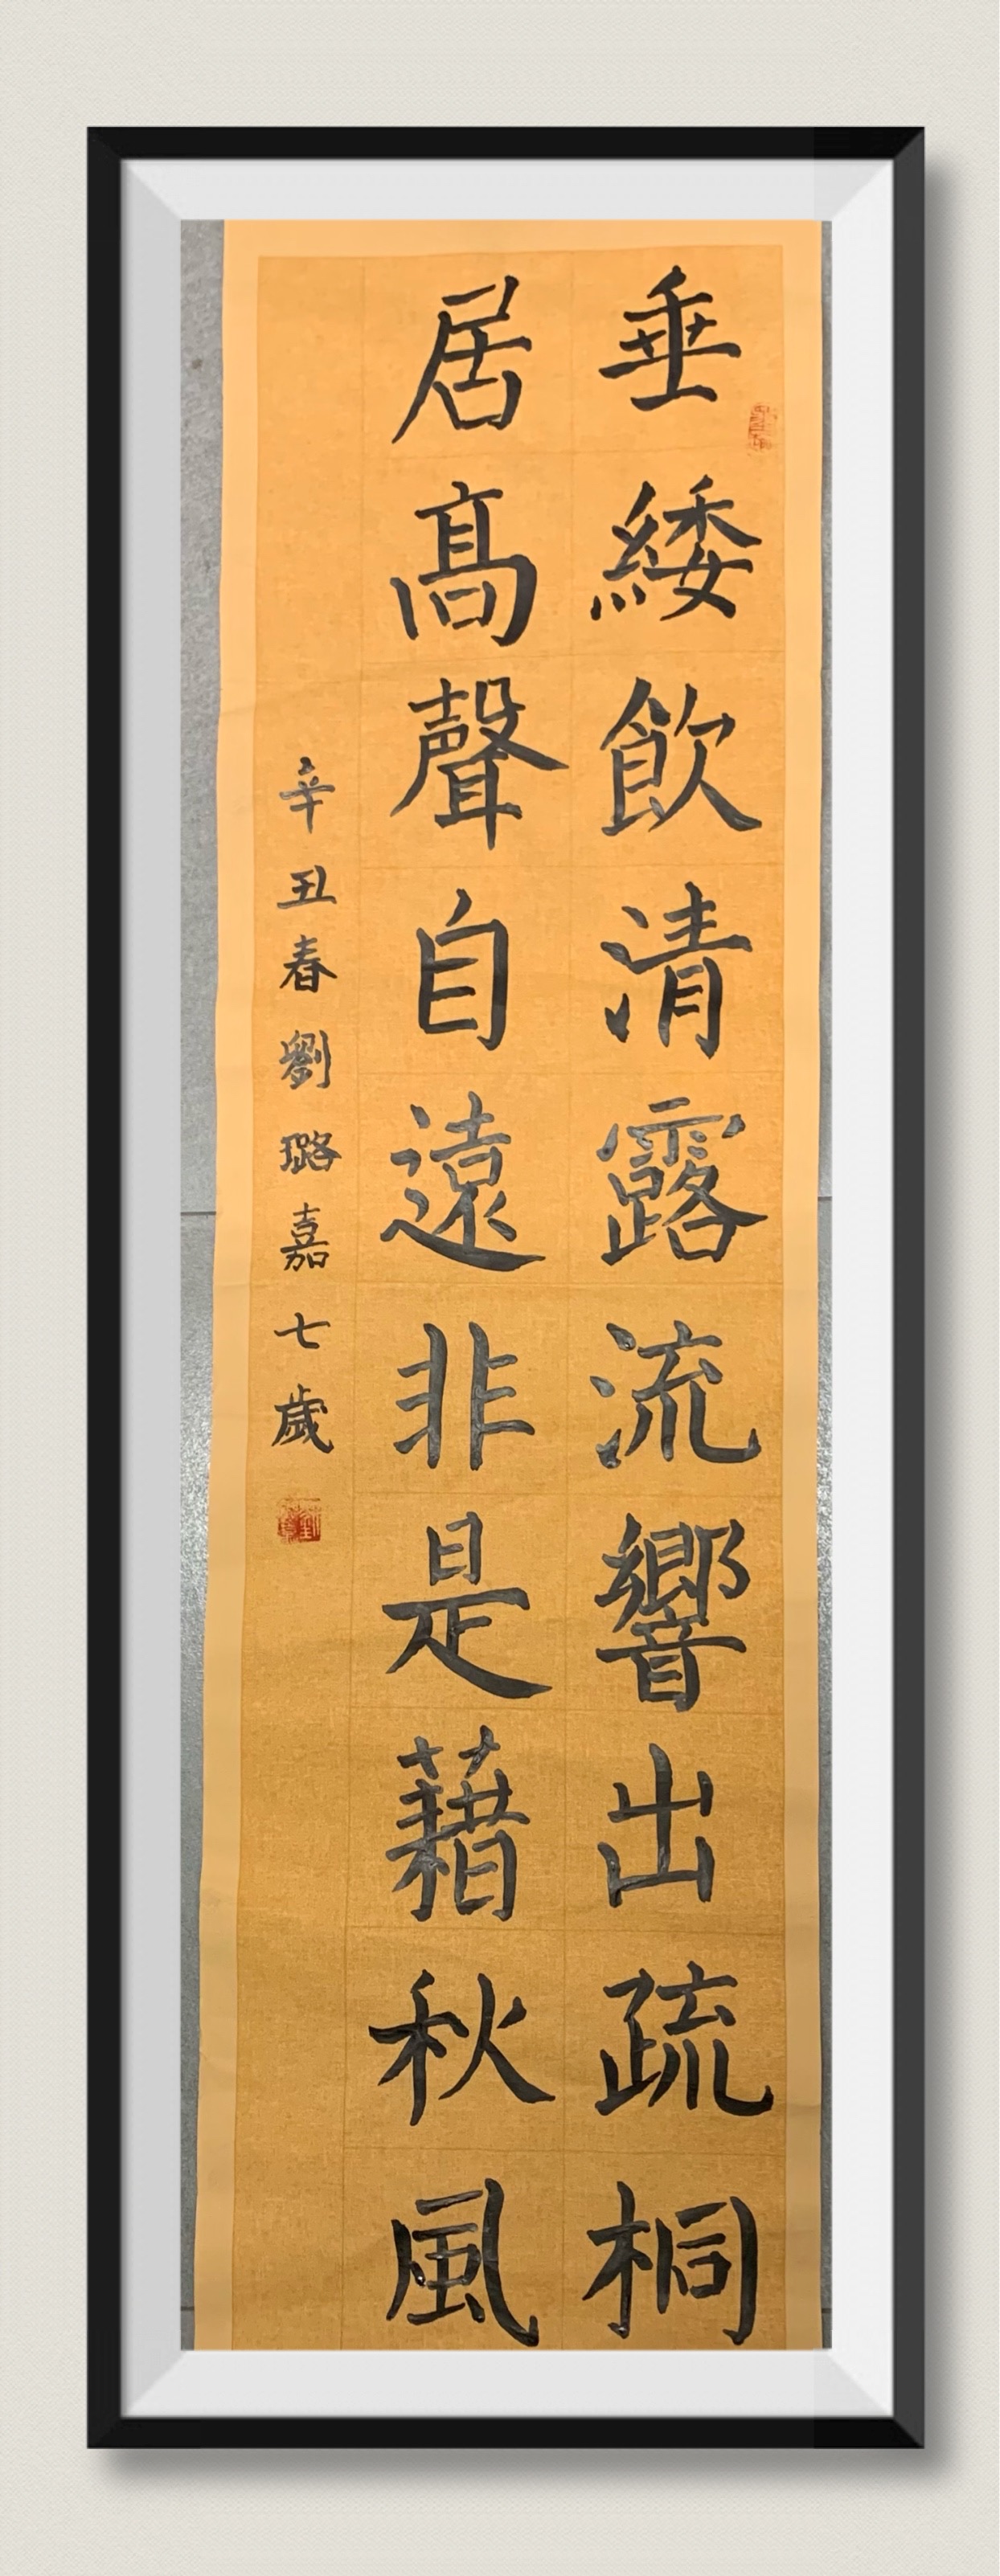 垂緌飲清露流響出疏桐
居高聲自遠非是藉秋風
辛丑春劉璐嘉七歲